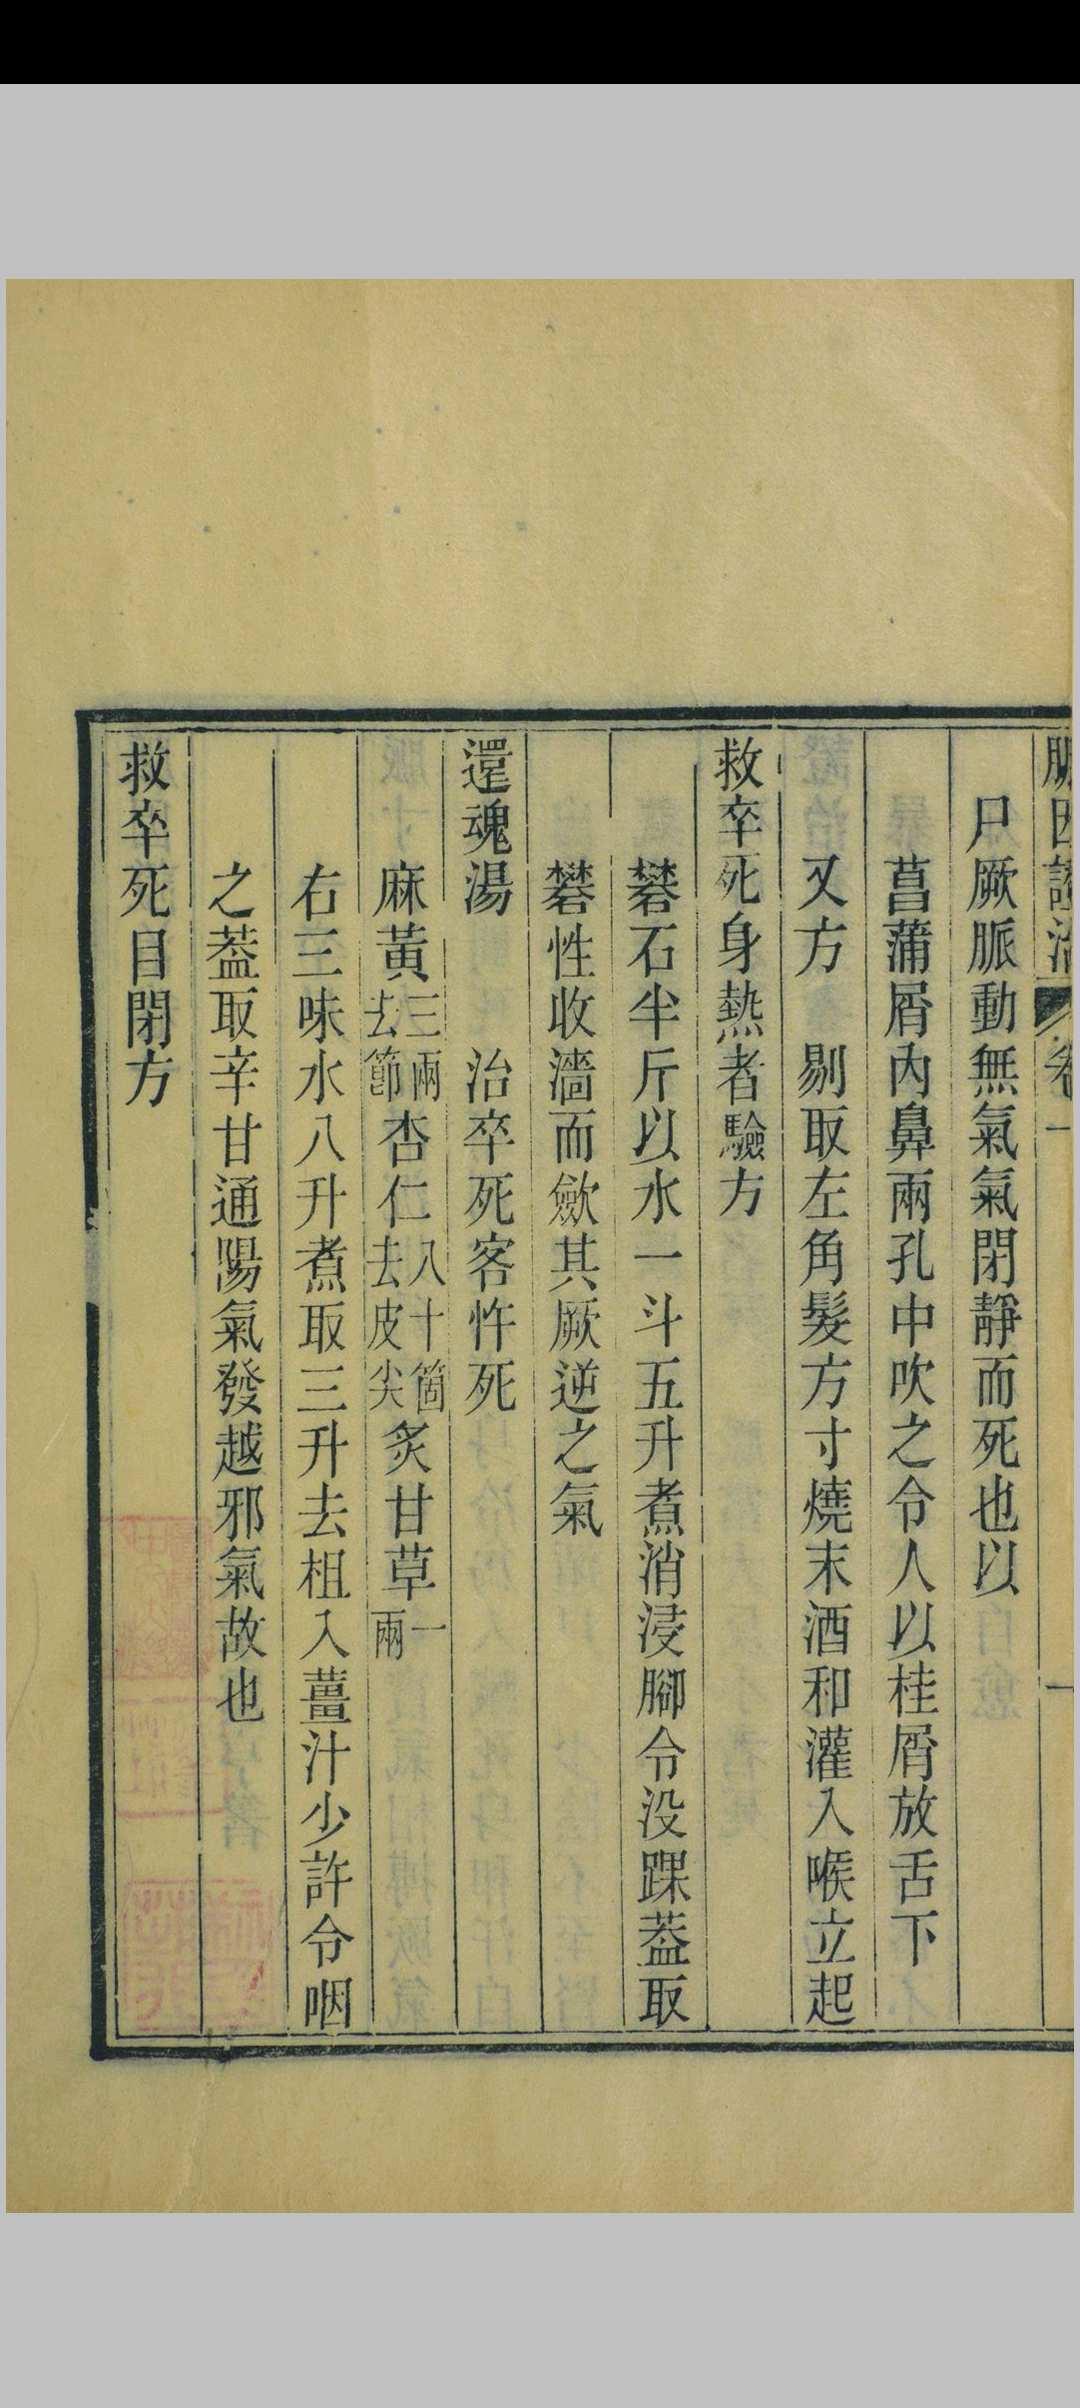 脈因證治 卷一 一
尸厥脈動無氣氣閉靜而死也以
菖蒲屑內鼻兩孔中吹之令人以桂屑放舌下
又方 剔取左角髮方寸燒末酒和灌入喉立起
救卒死身熱者驗方
礬石半斤以水一斗五升煮消浸腳令没踝葢取
礬性收濇而歛其厥逆之氣
還魂湯 治卒死客忤死
麻黃三兩去節杏仁八十箇去皮尖炙甘草一兩
右三味水八升煮取三升去柤入薑汁少許令咽
之葢取辛甘通陽氣發越邪氣故也
救卒死目閉方